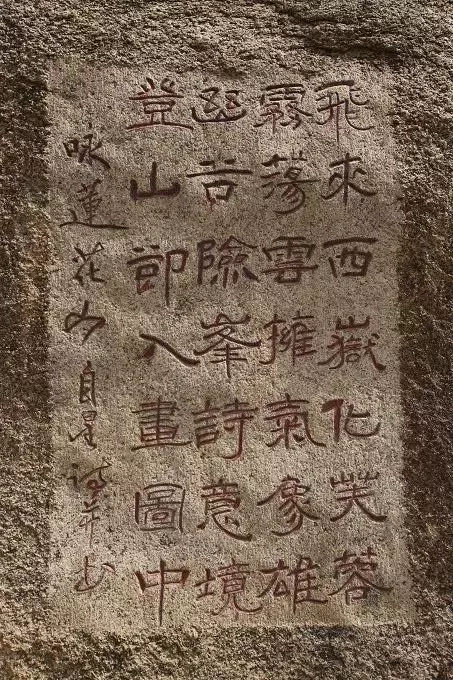 飛來西嶽化芙蓉
霧蕩雲擁氣象雄
幽谷險峯詩意境
登山卽入畫圖中
咏蓮花山自星詩并书